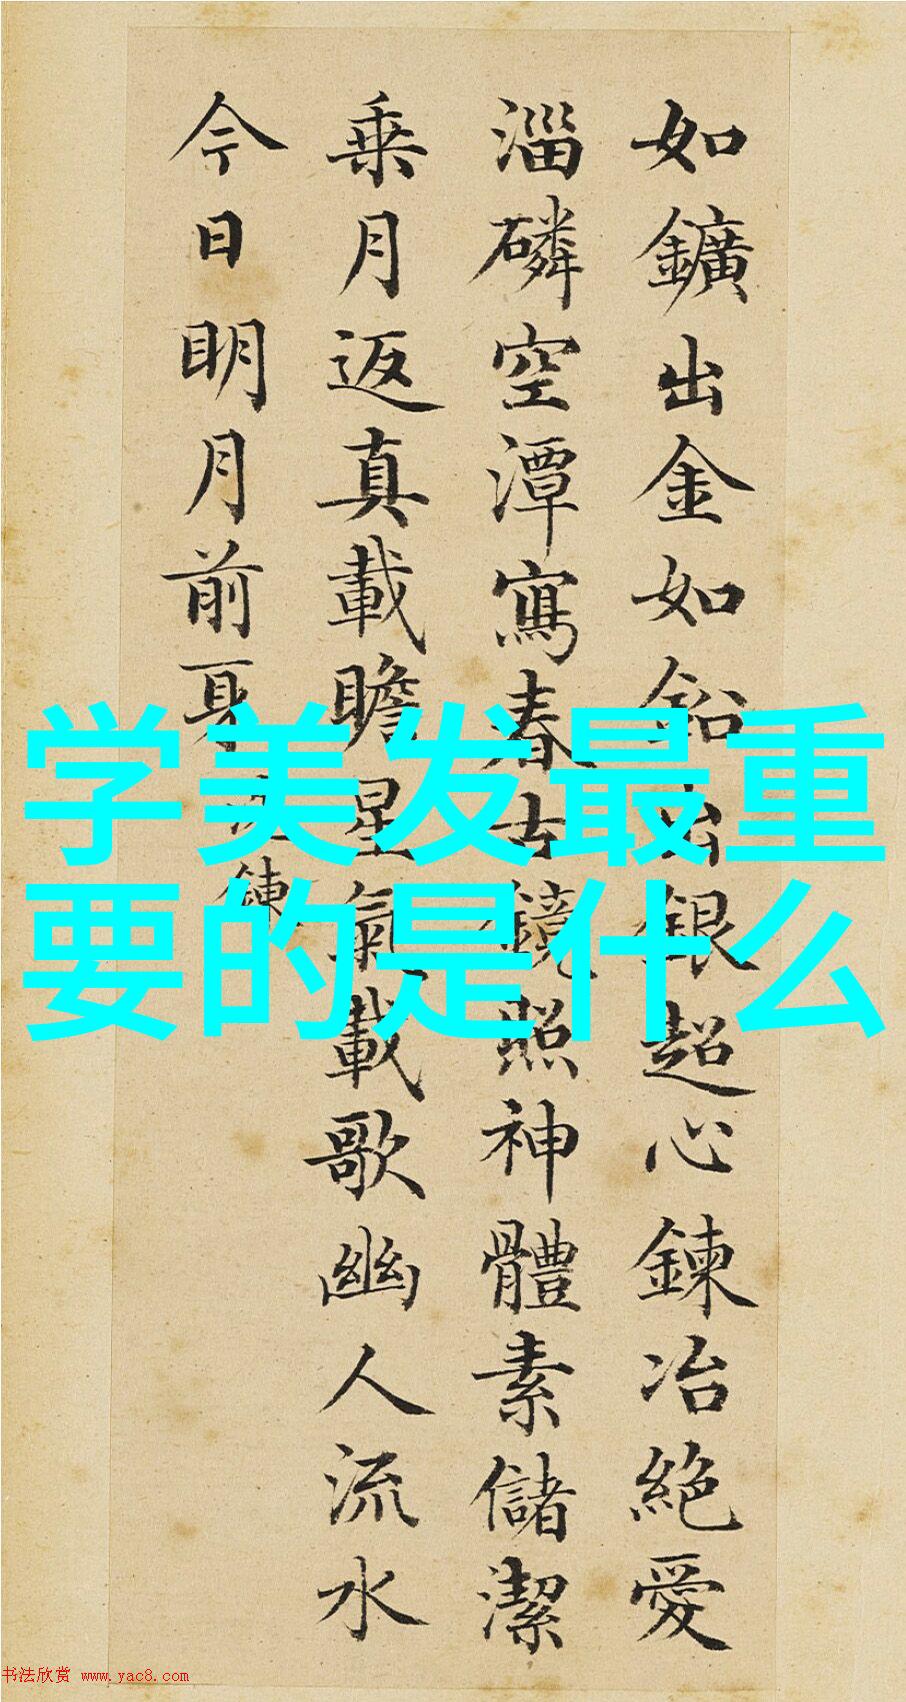 如鑛出金如鉛出銀超心鍊冶絕愛
淄磷空潭寫春古鏡照神體素儲潔
乗月返真載瞻星氣載歌幽人流水
今日明月前身
鍊
学美发最重
要的是什么
书法欣赏 www.yac8.com